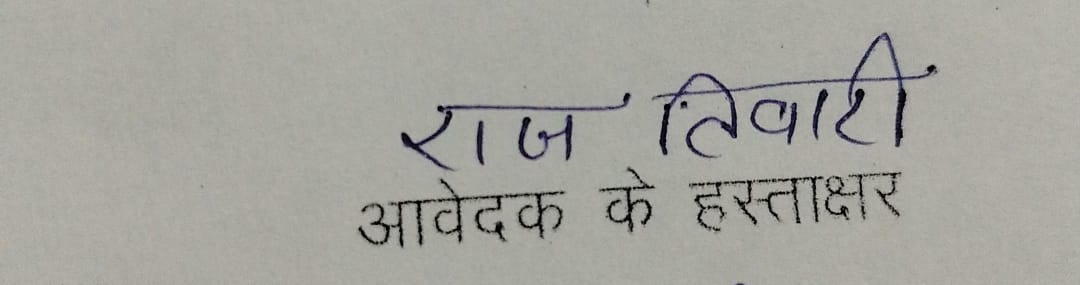 राज तिवारी
आवेदक के हस्ताक्षर